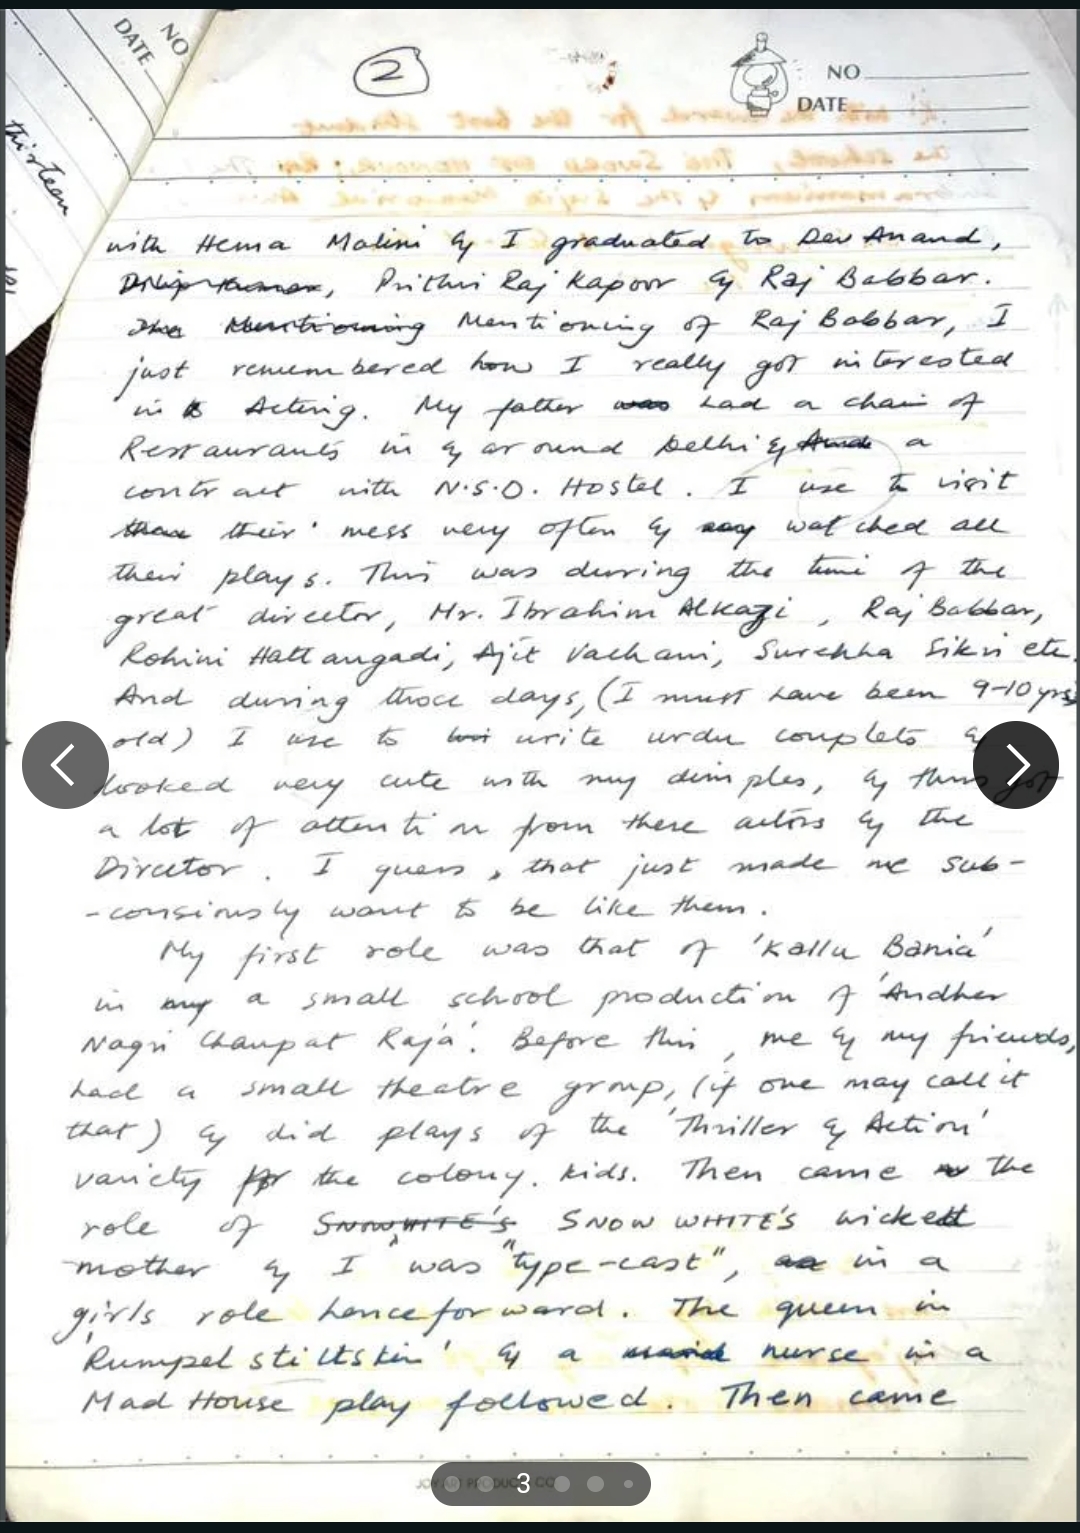 DATE
NO
thirteen
2
NO
DATE
with Hema Malini & I graduated to Dev Anand,
Dilip Kumar, Prithvi Raj Kapoor & Raj Babbar.
The Mentioning Mentioning of Raj Babbar, I
just remembered how I really got interested
in Acting. My father was had a chain of
Restaurants in & around Delhi & And a
contract with N.S.D. Hostel. I use to visit
their mess very often & watched all
their plays. This was during the time of the
great director, Mr. Ibrahim Alkazi, Raj Babbar,
Rohini Hattangadi, Ajit Vachani, Surekha Sikri etc.
And during those days, (I must have been 9-10 yrs
old) I use to write urdu couplets &
looked very cute with my dimples, & thus got
a lot of attention from these actors & the
Director. I guess, that just made me sub-
-consiously want to be like them.
My first role was that of 'Kallu Bania'
in my a small school production of 'Andher
Nagri Chaupat Raja'. Before this, me & my friends,
had a small theatre group, (if one may call it
that) & did plays of the 'Thriller & Action'
variety for the colony. kids. Then came the
role of SNOWHITE'S SNOW WHITE'S wicked
mother & I was "type-cast", as in a
girls role henceforward. The queen in
'Rumpelstiltskin' & a maid nurse in a
Mad House play followed. Then came
3